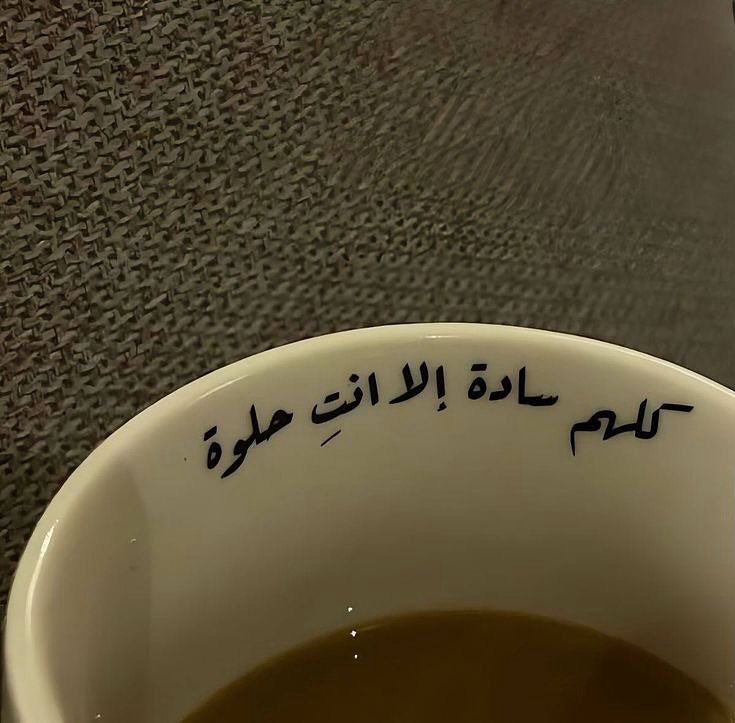 كلهم سادة إلا انتِ حلوة